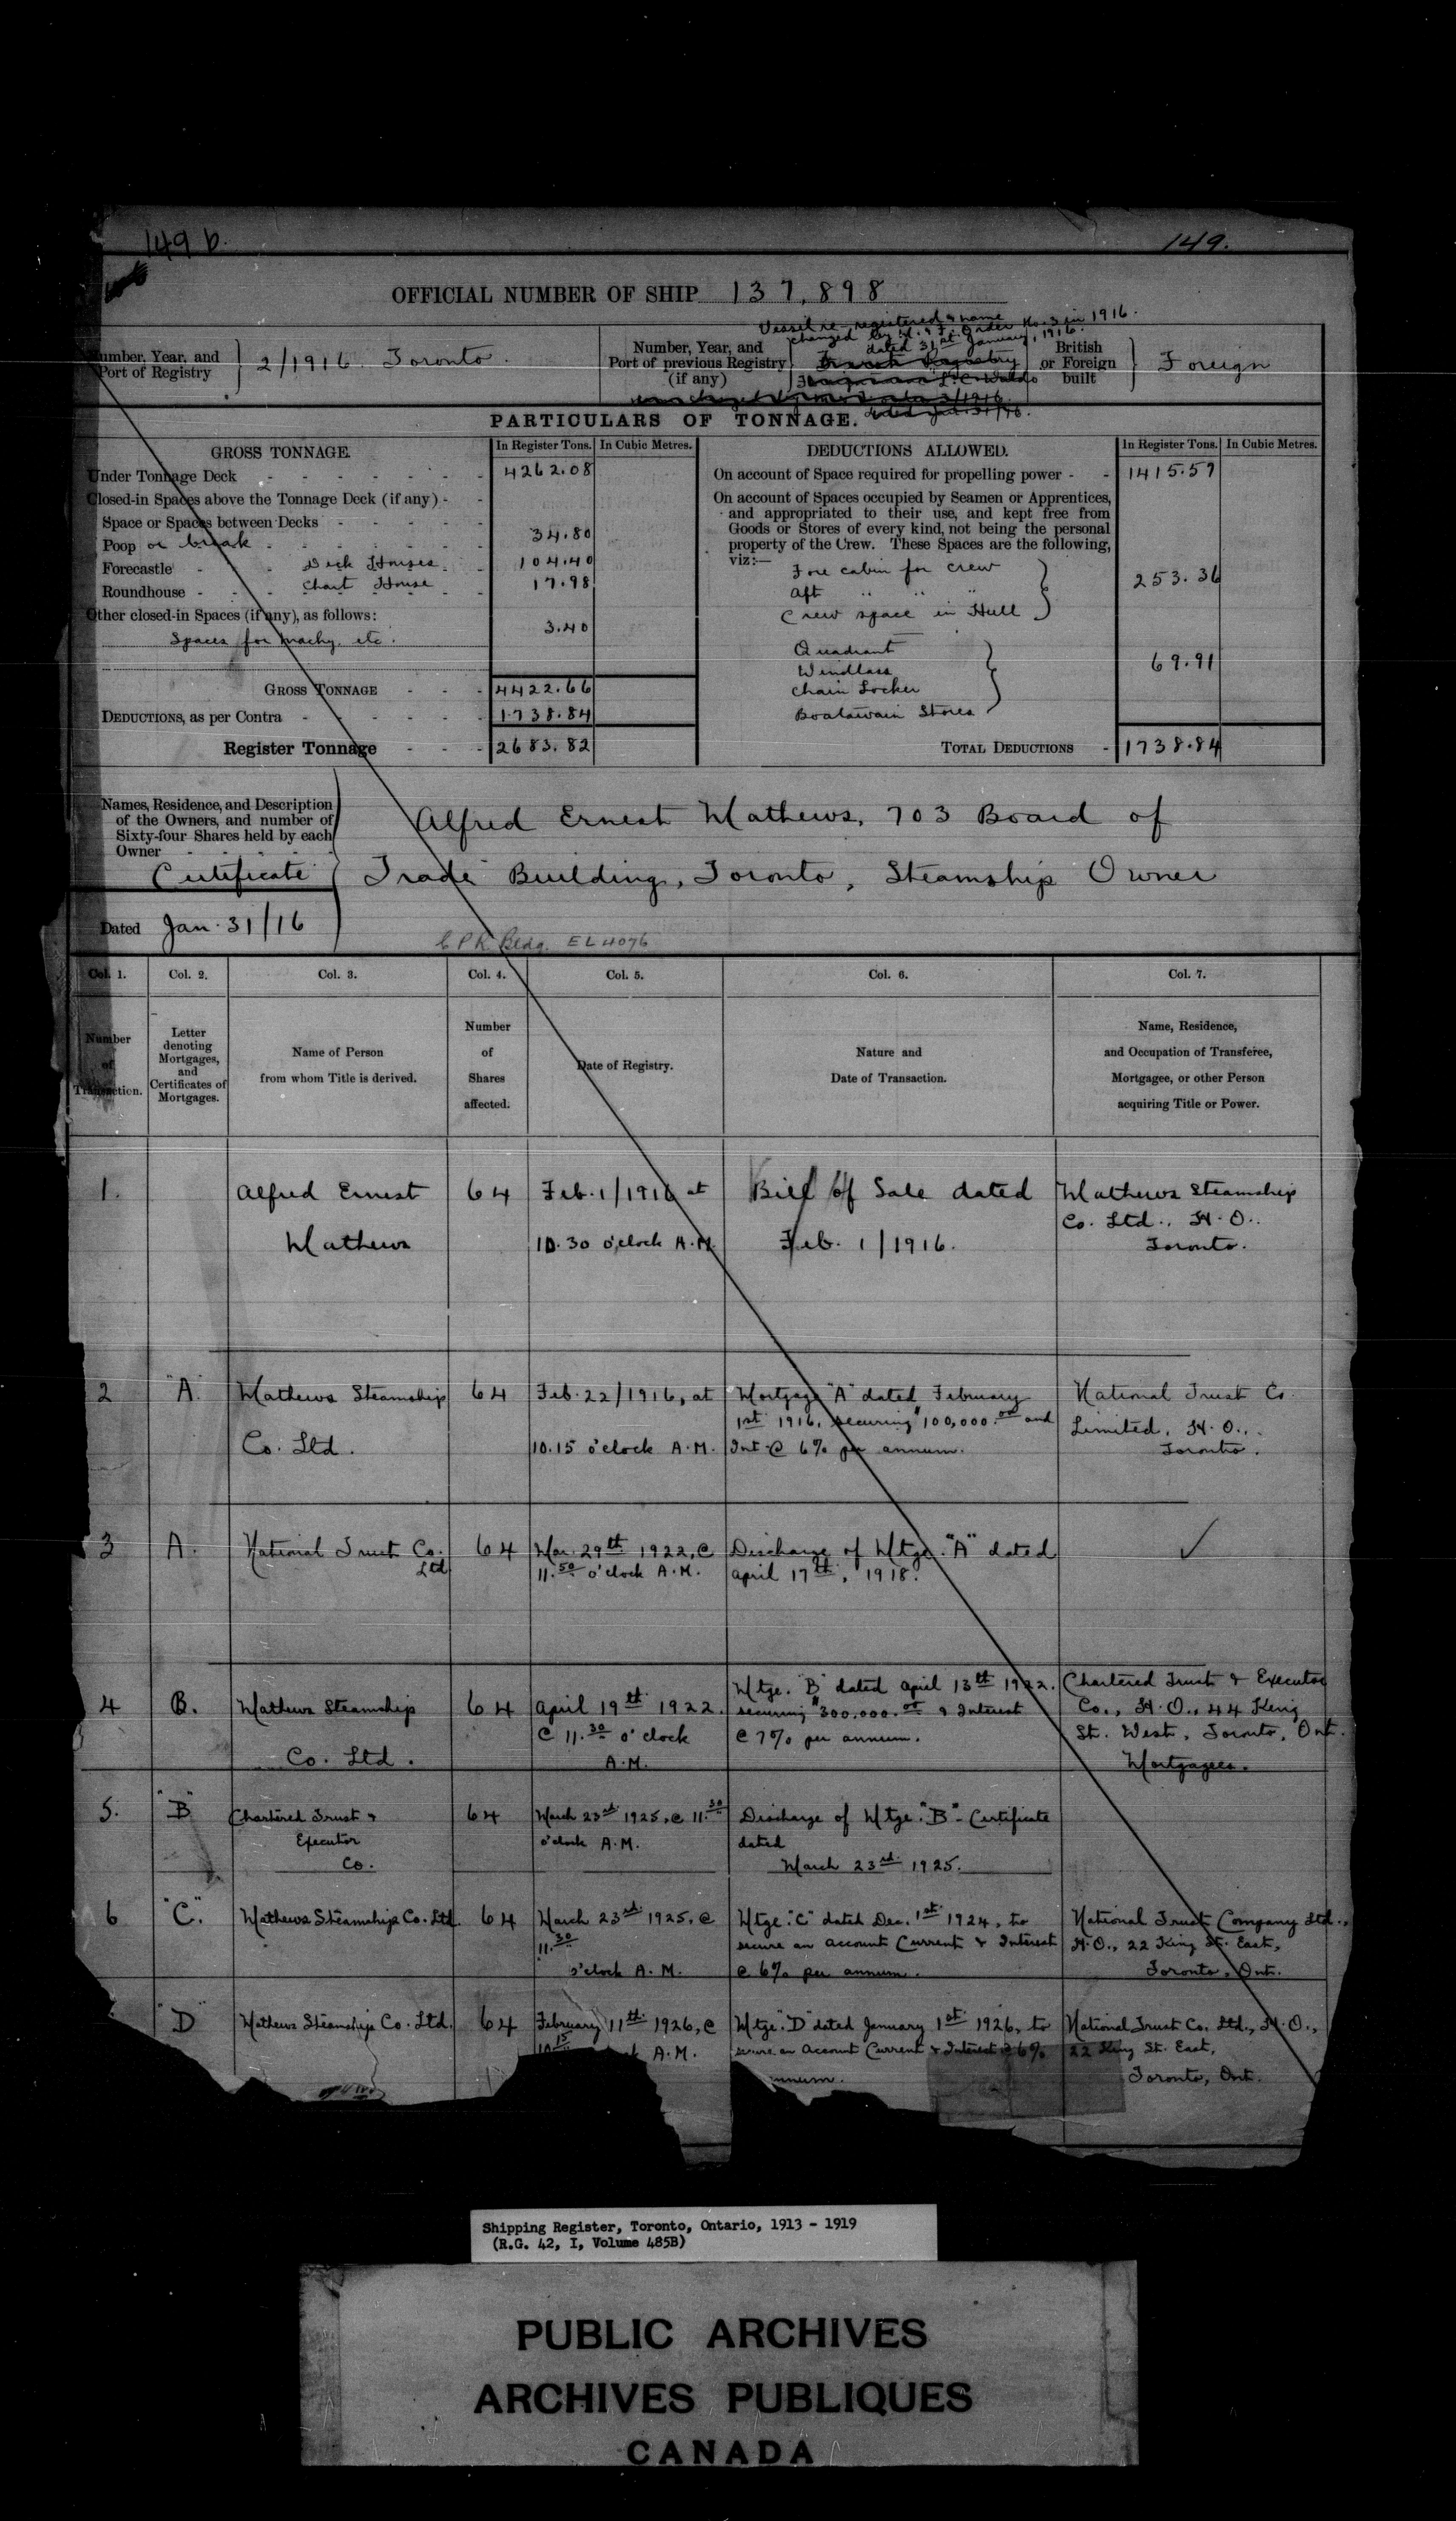 149 b.
149.
OFFICIAL NUMBER OF SHIP 137,898
Vessel re-registered & name
changed by M. & F. Order No. 3 in 1916.
dated 31st January, 1916.
Number, Year, and
Port of Registry
2/1916 Toronto.
Number, Year, and
Port of previous Registry
(if any)
British
or Foreign
built
Foreign
PARTICULARS OF TONNAGE.
GROSS TONNAGE.
In Register Tons. In Cubic Metres.
DEDUCTIONS ALLOWED.
In Register Tons. In Cubic Metres.
Under Tonnage Deck 4262.08
Closed-in Spaces above the Tonnage Deck (if any)
Space or Spaces between Decks
Poop or break 34.80
Forecastle Deck Houses 104.40
Roundhouse Chart House 17.98
Other closed-in Spaces (if any), as follows:
Spaces for machy. etc. 3.40
GROSS TONNAGE 4422.66
DEDUCTIONS, as per Contra 1738.84
Register Tonnage 2683.82
On account of Space required for propelling power 1415.57
On account of Spaces occupied by Seamen or Apprentices,
and appropriated to their use, and kept free from
Goods or Stores of every kind, not being the personal
property of the Crew. These Spaces are the following,
viz:—
Fore cabin for crew
Aft " " "
Crew space in Hull
253.36
Quadrant
Windlass
Chain Locker
Boatswain Stores
69.91
TOTAL DEDUCTIONS 1738.84
Names, Residence, and Description
of the Owners, and number of
Sixty-four Shares held by each
Owner
Certificate
Dated Jan. 31/16
Alfred Ernest Mathews, 703 Board of
Trade Building, Toronto, Steamship Owner
C P R Bldg. EL 4076
Col. 1. Col. 2. Col. 3. Col. 4. Col. 5. Col. 6. Col. 7.
Number
of
Transaction.
Letter
denoting
Mortgages,
and
Certificates of
Mortgages.
Name of Person
from whom Title is derived.
Number
of
Shares
affected.
Date of Registry.
Nature and
Date of Transaction.
Name, Residence,
and Occupation of Transferee,
Mortgagee, or other Person
acquiring Title or Power.
1.
Alfred Ernest
Mathews
64
Feb. 1/1916 at
10.30 o'clock A.M.
Bill of Sale dated
Feb. 1/1916.
Mathews Steamship
Co. Ltd., H.O.
Toronto.
2
"A"
Mathews Steamship
Co. Ltd.
64
Feb. 22/1916, at
10.15 o'clock A.M.
Mortgage "A" dated February
1st 1916, securing $100,000.00 and
Int @ 6% per annum.
National Trust Co.
Limited, H.O.,
Toronto.
3
A.
National Trust Co.
Ltd
64
Mar. 29th 1922, @
11.50 o'clock A.M.
Discharge of Mtge. "A" dated
April 17th, 1918.
✓
4
B.
Mathews Steamship
Co. Ltd.
64
April 19th 1922.
@ 11.30 o'clock
A.M.
Mtge. "B" dated April 13th 1922.
securing $300,000.00 & Interest
@ 7% per annum.
Chartered Trust & Executor
Co., H.O., 44 King
St. West, Toronto, Ont.
Mortgagees.
5.
"B"
Chartered Trust &
Executor
Co.
64
March 23rd 1925, @ 11.30
o'clock A.M.
Discharge of Mtge. "B" - Certificate
dated
March 23rd 1925.
6
"C."
Mathews Steamship Co. Ltd.
64
March 23rd 1925, @
11.30
o'clock A.M.
Mtge. "C" dated Dec. 1st 1924, to
secure an Account Current & Interest
@ 6% per annum.
National Trust Company Ltd.,
H.O., 22 King St. East,
Toronto, Ont.
"D"
Mathews Steamship Co. Ltd.
64
February 11th 1926, @
10.15 A.M.
Mtge. "D" dated January 1st 1926, to
secure an Account Current & Interest @ 6%
annum.
National Trust Co. Ltd., H.O.,
22 King St. East,
Toronto, Ont.
Shipping Register, Toronto, Ontario, 1913 - 1919
(R.G. 42, I, Volume 485B)
PUBLIC ARCHIVES
ARCHIVES PUBLIQUES
CANADA